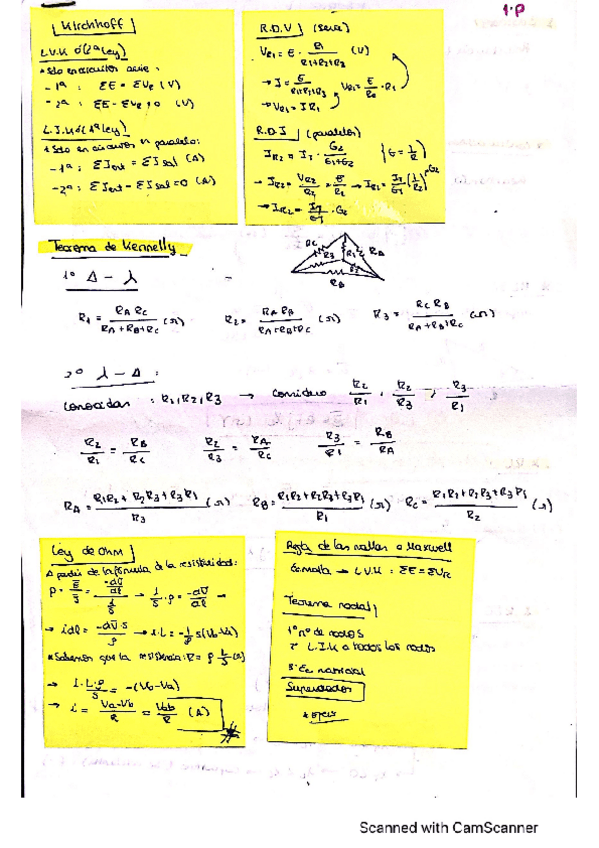 1·P
Kirchhoff
L.V.K ó (2ª Ley)
* Solo en circuitos serie:
- 1ª : ΣE = ΣVR (V)
- 2ª : ΣE - ΣVR = 0 (V)
L.I.K ó (1ª Ley)
* Solo en circuitos en paralelo:
- 1ª : ΣIent = ΣIsal (A)
- 2ª : ΣIent - ΣIsal = 0 (A)
R.D.V (serie)
VR1 = E · R1/(R1+R2+R3) (V)
→ I = E/(R1+R2+R3)
→ VR1 = I R1
R.D.I (paralelo)
IR2 = IT · G2/(G1+G2) {G = 1/R}
→ IR2 = IT/GT · G2
Teorema de Kennelly
1º Δ - λ
RC R3 R1 RA R2 RB
R1 = RA RC/(RA+RB+RC) (Ω) R2 = RA RB/(RA+RB+RC) (Ω) R3 = RC RB/(RA+RB+RC) (Ω)
2º λ - Δ :
conocidas : R1, R2, R3 → considero R2/R1 , R2/R3 , R3/R1
R2/R1 = RB/RC R2/R3 = RA/RC R3/R1 = RB/RA
RA = (R1R2 + R2R3 + R3R1)/R3 (Ω) RB = (R1R2 + R2R3 + R3R1)/R1 (Ω) RC = (R1R2 + R2R3 + R3R1)/R2 (Ω)
Ley de Ohm
A partir de la fórmula de la resistividad:
→ i·L = -1/ρ S(Vb-Va)
* Sabemos que la resistencia: R = ρ L/S (Ω)
→ i·L·ρ/S = -(Vb-Va)
→ i = (Va-Vb)/R = Vab/R (A)
Regla de las mallas o Maxwell
→ L.V.K : ΣE = ΣVR
Teorema nodal
1º nº de nodos
2º L.I.K a todos los nodos
3º Ec matricial
Supernodos
Scanned with CamScanner